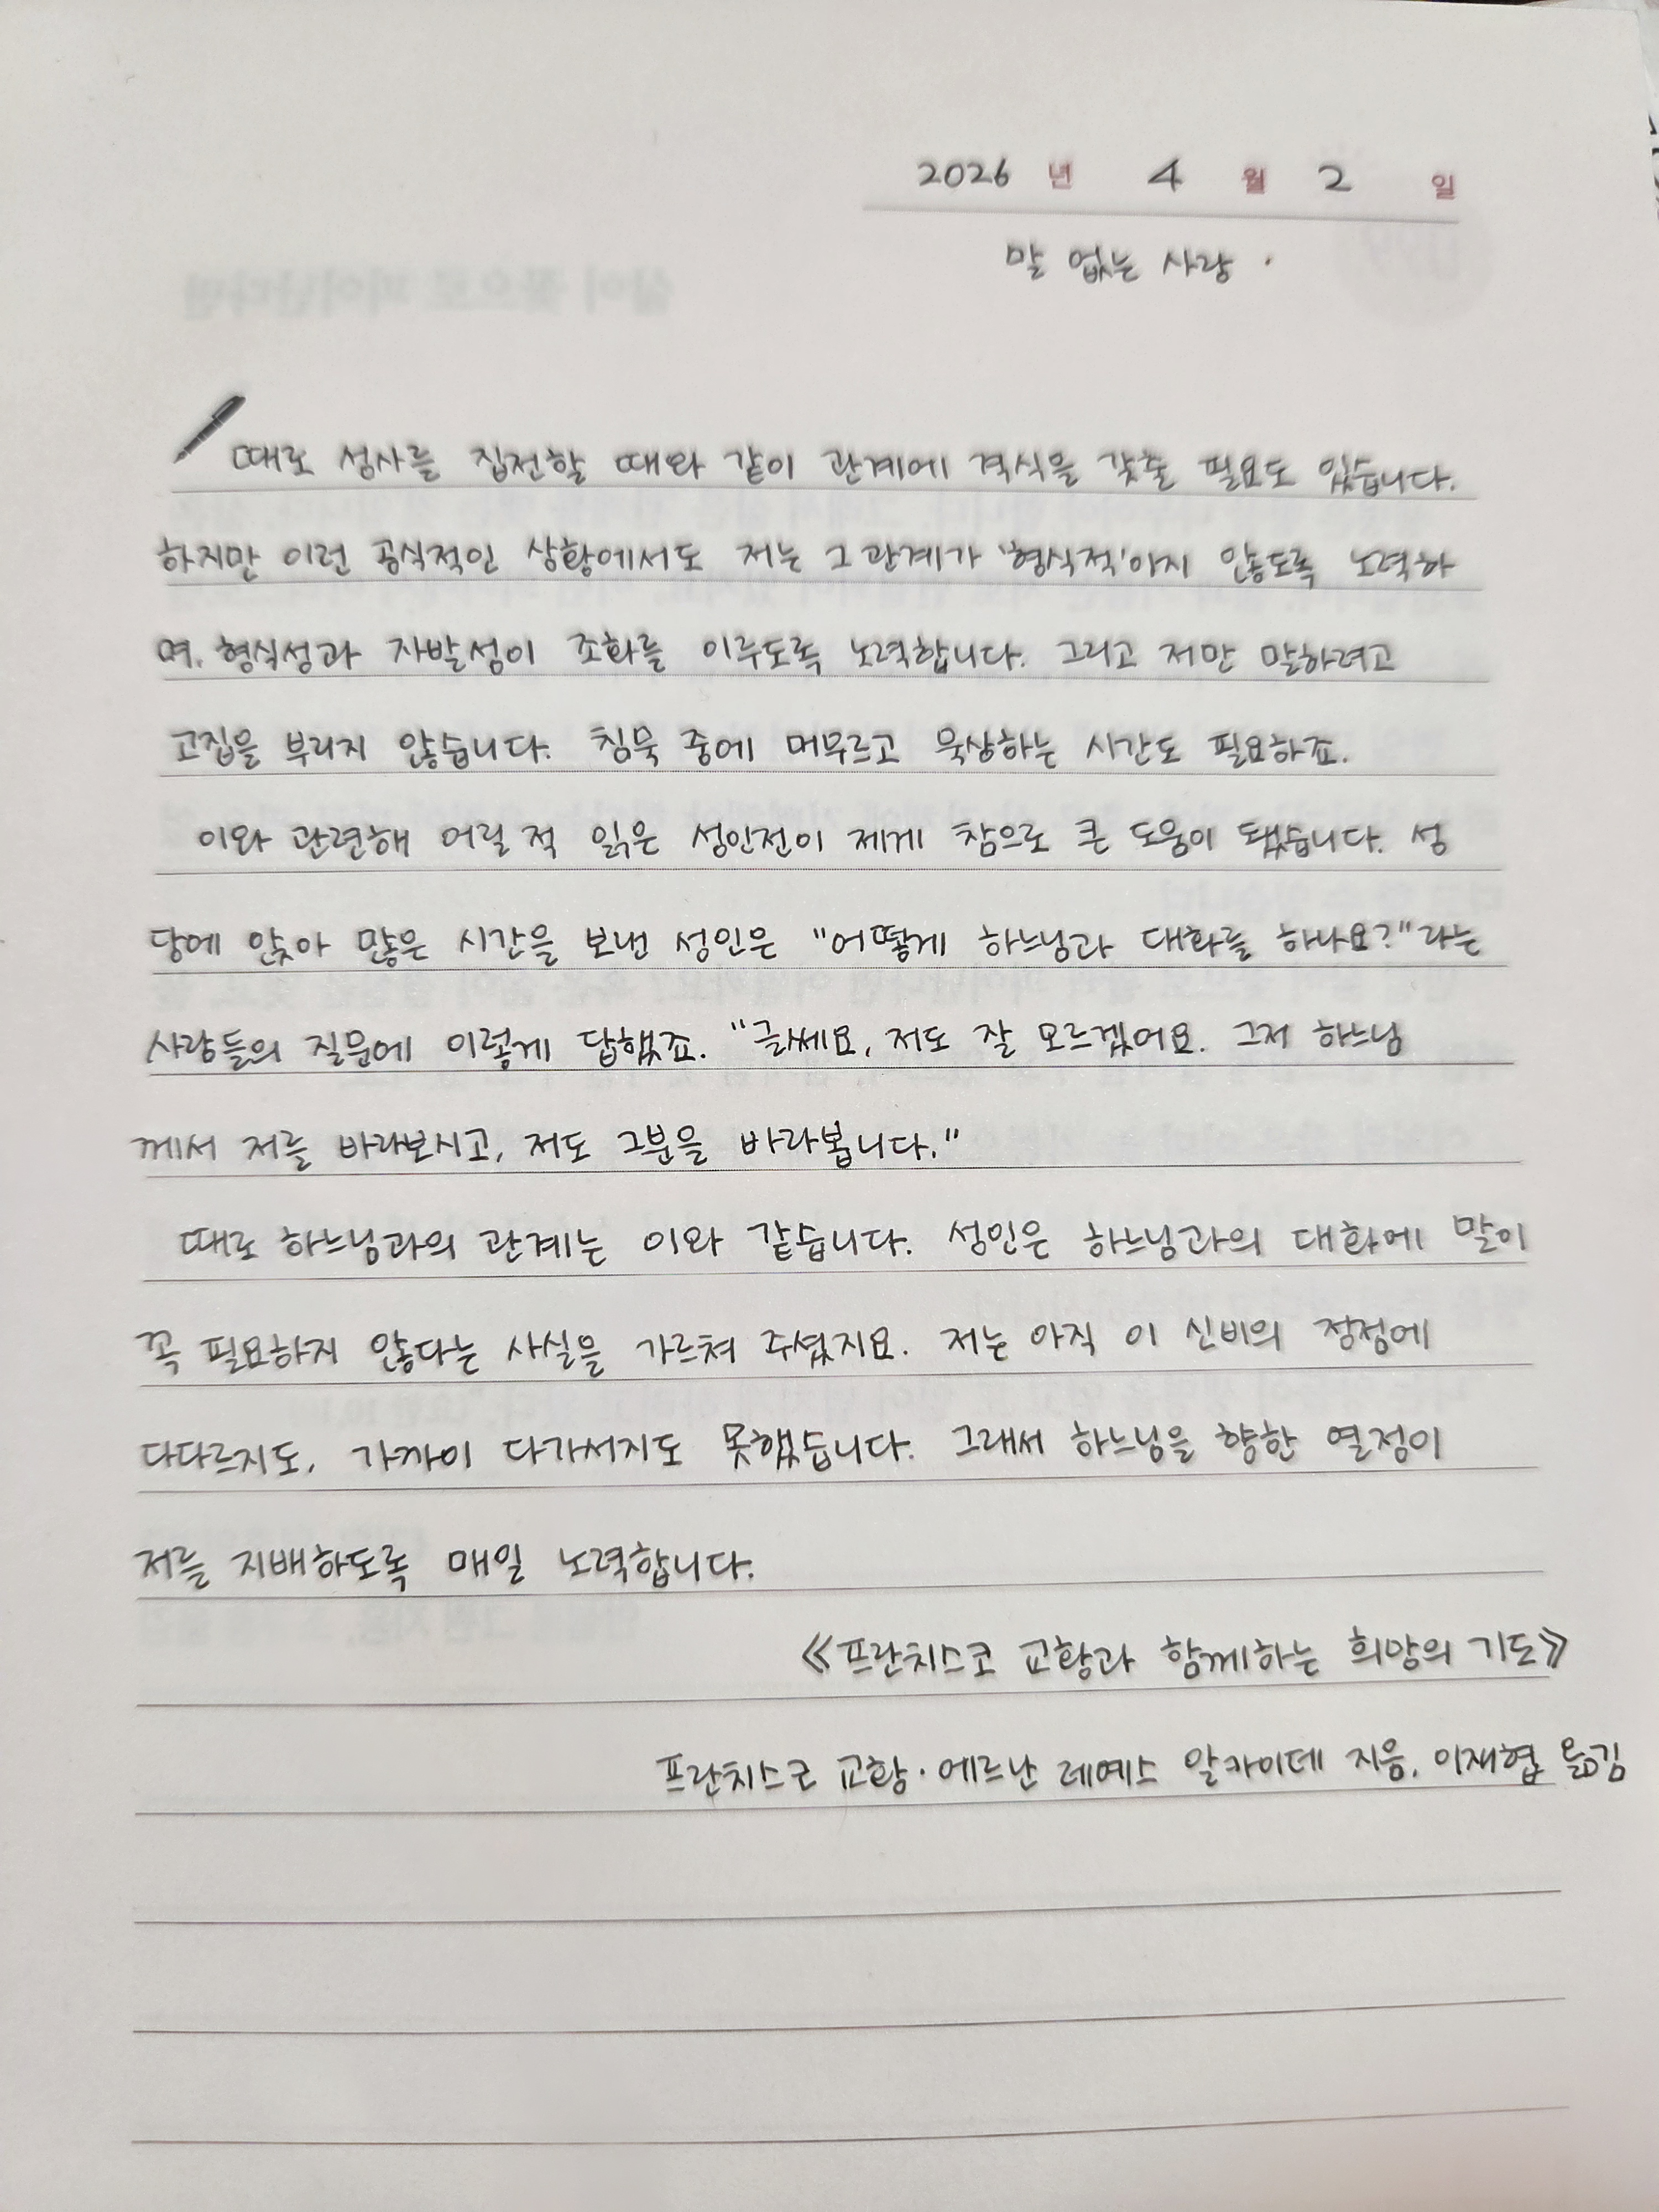 2026 년 4 월 2 일
말 없는 사랑.
때로 성사를 집전할 때와 같이 관계에 격식을 갖출 필요도 있습니다.
하지만 이런 공식적인 상황에서도 저는 그 관계가 '형식적'아지 않도록 노력하
며, 형식성과 자발성이 조화를 이루도록 노력합니다. 그리고 저만 말하려고
고집을 부리지 않습니다. 침묵 중에 머무르고 묵상하는 시간도 필요하죠.
이와 관련해 어릴 적 읽은 성인전이 제게 참으로 큰 도움이 됐습니다. 성
당에 앉아 많은 시간을 보낸 성인은 "어떻게 하느님과 대화를 하나요?"라는
사람들의 질문에 이렇게 답했죠. "글쎄요, 저도 잘 모르겠어요. 그저 하느님
께서 저를 바라보시고, 저도 그분을 바라봅니다."
때로 하느님과의 관계는 이와 같습니다. 성인은 하느님과의 대화에 말이
꼭 필요하지 않다는 사실을 가르쳐 주셨지요. 저는 아직 이 신비의 정점에
다다르지도, 가까이 다가서지도 못했습니다. 그래서 하느님을 향한 열정이
저를 지배하도록 매일 노력합니다.
《프란치스코 교황과 함께하는 희망의 기도》
프란치스코 교황·에르난 레예스 알카이데 지음, 이재협 옮김